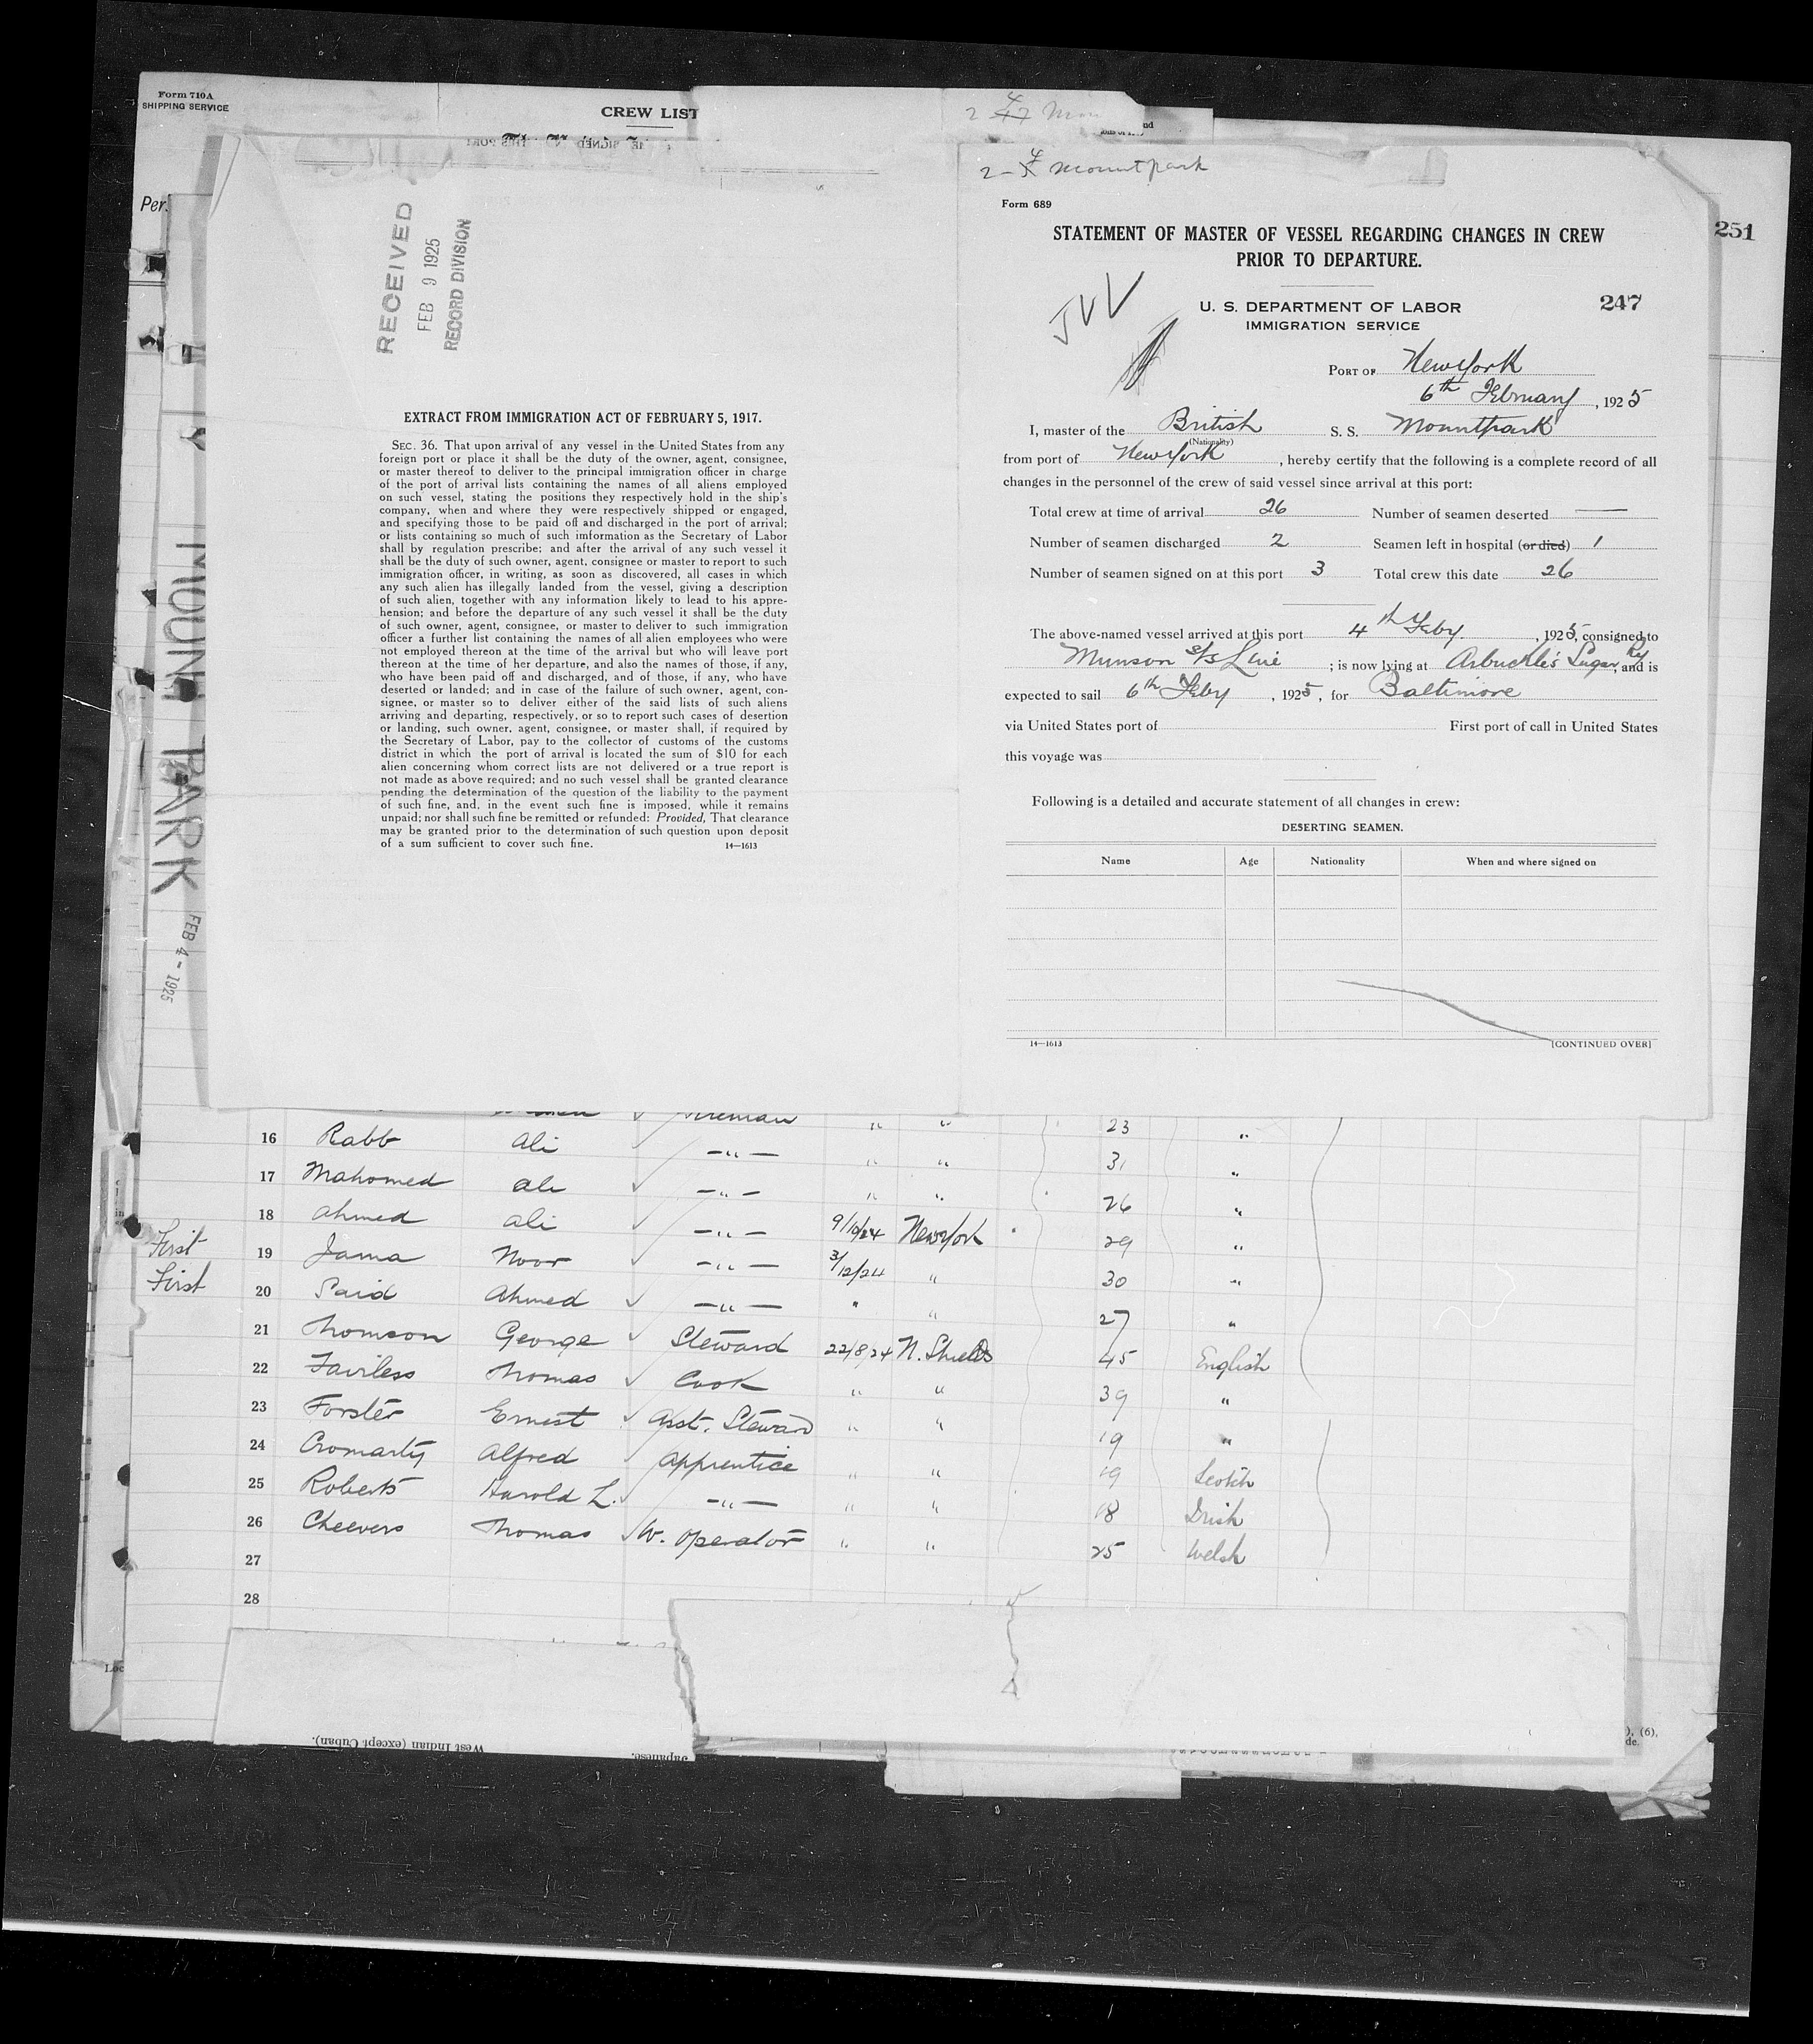 Form 710A
SHIPPING SERVICE
CREW LIST
Per.
251
2-4 Mountpark
Form 689
STATEMENT OF MASTER OF VESSEL REGARDING CHANGES IN CREW
PRIOR TO DEPARTURE.
U. S. DEPARTMENT OF LABOR
IMMIGRATION SERVICE
247
PORT OF New York
6th February, 1925
I, master of the British S. S. Mountpark
(Nationality)
from port of New York, hereby certify that the following is a complete record of all
changes in the personnel of the crew of said vessel since arrival at this port:
Total crew at time of arrival 26 Number of seamen deserted —
Number of seamen discharged 2 Seamen left in hospital (or died) 1
Number of seamen signed on at this port 3 Total crew this date 26
The above-named vessel arrived at this port 4th Feby., 1925, consigned to
Munson S/S Line; is now lying at Arbuckle's Sugar Ry, and is
expected to sail 6th Feby, 1925, for Baltimore
via United States port of First port of call in United States
this voyage was
Following is a detailed and accurate statement of all changes in crew:
DESERTING SEAMEN.
Name Age Nationality When and where signed on
14—1613 [CONTINUED OVER]
RECEIVED
FEB 9 1925
RECORD DIVISION
EXTRACT FROM IMMIGRATION ACT OF FEBRUARY 5, 1917.
SEC. 36. That upon arrival of any vessel in the United States from any
foreign port or place it shall be the duty of the owner, agent, consignee,
or master thereof to deliver to the principal immigration officer in charge
of the port of arrival lists containing the names of all aliens employed
on such vessel, stating the positions they respectively hold in the ship's
company, when and where they were respectively shipped or engaged,
and specifying those to be paid off and discharged in the port of arrival;
or lists containing so much of such imformation as the Secretary of Labor
shall by regulation prescribe; and after the arrival of any such vessel it
shall be the duty of such owner, agent, consignee or master to report to such
immigration officer, in writing, as soon as discovered, all cases in which
any such alien has illegally landed from the vessel, giving a description
of such alien, together with any information likely to lead to his appre-
hension; and before the departure of any such vessel it shall be the duty
of such owner, agent, consignee, or master to deliver to such immigration
officer a further list containing the names of all alien employees who were
not employed thereon at the time of the arrival but who will leave port
thereon at the time of her departure, and also the names of those, if any,
who have been paid off and discharged, and of those, if any, who have
deserted or landed; and in case of the failure of such owner, agent, con-
signee, or master so to deliver either of the said lists of such aliens
arriving and departing, respectively, or so to report such cases of desertion
or landing, such owner, agent, consignee, or master shall, if required by
the Secretary of Labor, pay to the collector of customs of the customs
district in which the port of arrival is located the sum of $10 for each
alien concerning whom correct lists are not delivered or a true report is
not made as above required; and no such vessel shall be granted clearance
pending the determination of the question of the liability to the payment
of such fine, and, in the event such fine is imposed, while it remains
unpaid; nor shall such fine be remitted or refunded: Provided, That clearance
may be granted prior to the determination of such question upon deposit
of a sum sufficient to cover such fine. 14—1613
MOUNT PARK
FEB 4 - 1925
Fireman " " 23 "
16 Rabb Ali —"— " " 31 "
17 Mahomed Ali —"— " " 26 "
18 Ahmed Ali —"— 9/10/24 New York 29 "
First 19 Jama Noor —"— 3/12/24 " 30 "
First 20 Said Ahmed —"— " " 27 "
21 Thomson George Steward 22/8/24 N. Shields 45 English
22 Fairless Thomas Cook " " 39 "
23 Forster Ernest Asst. Steward " " 19 "
24 Cromarty Alfred Apprentice " " 19 Scotch
25 Roberts Harold L. —"— " " 18 Irish
26 Cheevers Thomas W. Operator " " 25 Welsh
27
28
West Indian (except Cuban).
Japanese.